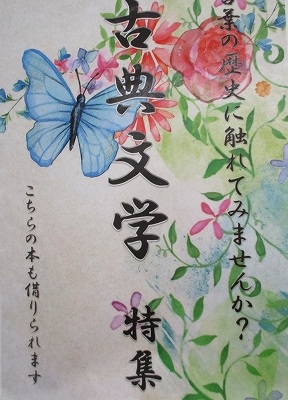 言葉の歴史に触れてみませんか?
古典文学 特集
こちらの本も借りられます